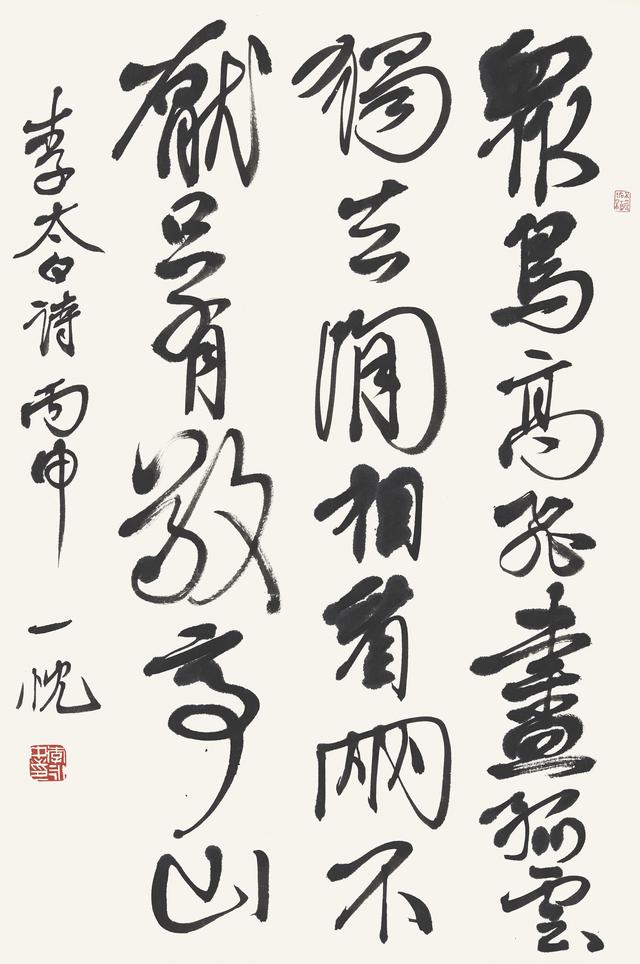 眾鳥高飛盡孤雲
獨去閒相看兩不
厭只有敬亭山
李太白詩 丙申 一忱